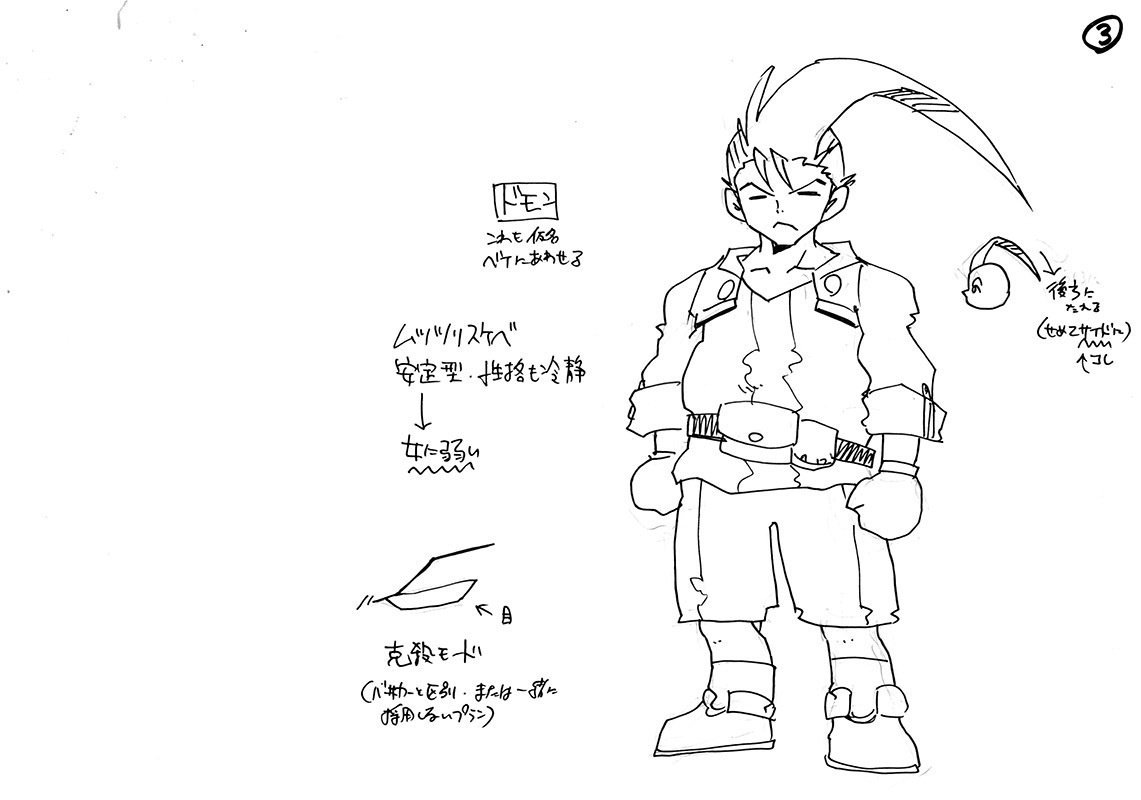 ③
ドモン
これも仮名
ベケにあわせる
ムッツリスケベ
安定型・性格も冷静
女に弱い
目
克殺モード
(バーサーカーと区別・または一緒に
採用しないプラン)
後ろに
たれる
(せめてサイドに)
↑コレ